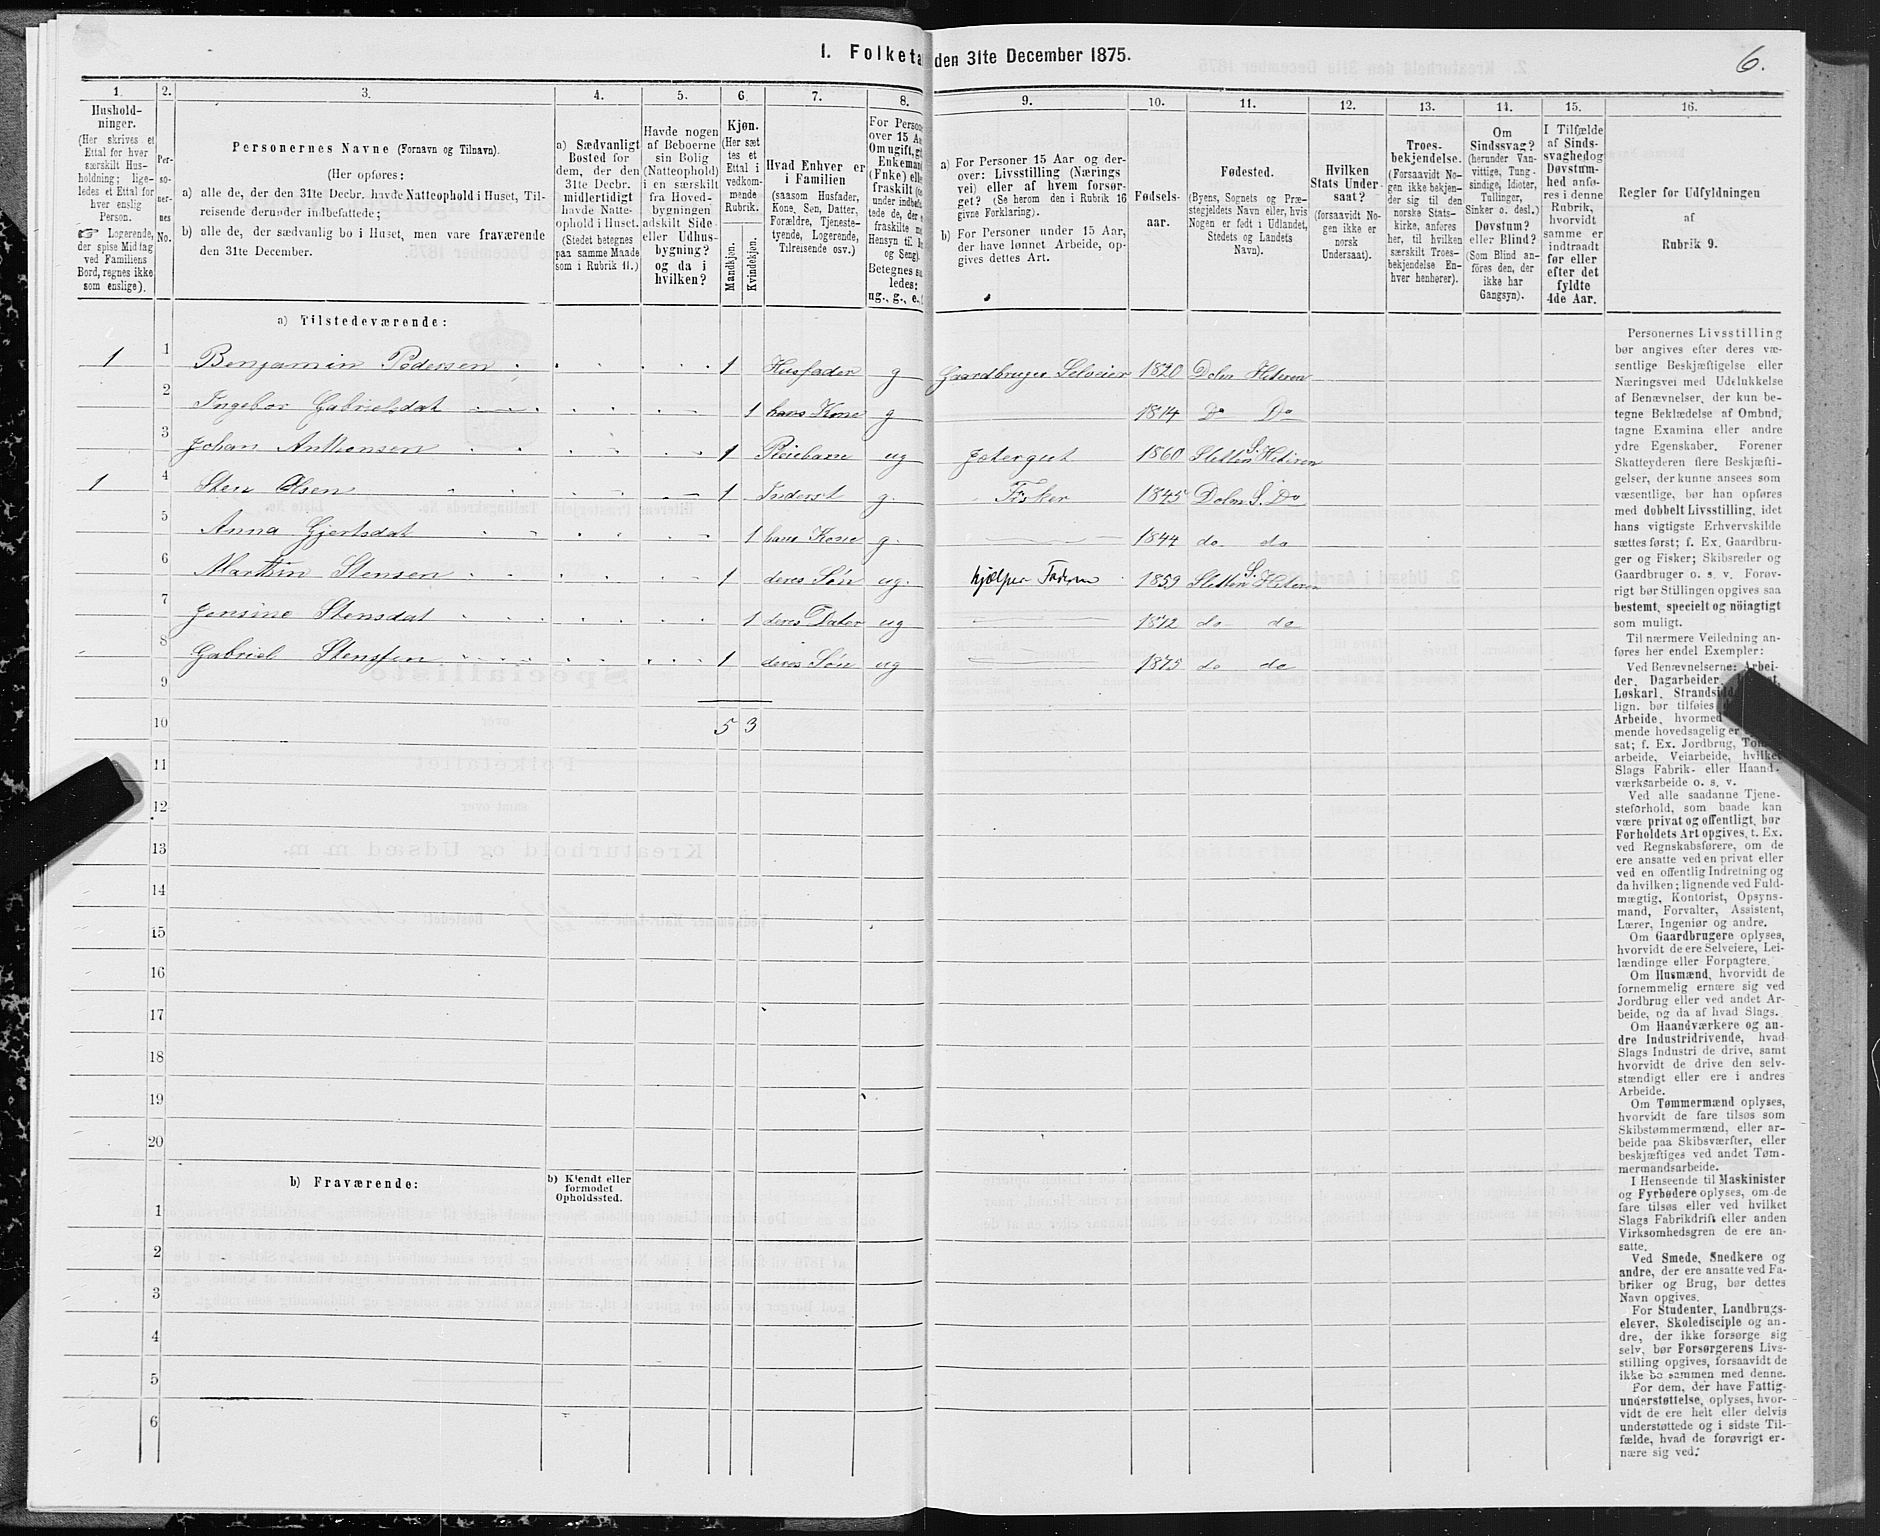 I. Folketa den 31te December 1875.
6.
1. 2. 3. 4. 5. 6. 7. 8. 9. 10. 11. 12. 13. 14. 15. 16.
Hushold-
ninger.
(Her skrives et
Ettal for hver
særskilt Hus-
holdning; lige-
ledes et Ettal for
hver enslig
Person.
☞ Logerende,
der spise Middag
ved Familiens
Bord, regnes ikke
som enslige).
Per-
so-
ner-
nes
No.
Personernes Navne (Fornavn og Tilnavn).
(Her opføres:
a) alle de, der den 31te Decbr. havde Natteophold i Huset, Til-
reisende derunder indbefattede;
b) alle de, der sædvanlig bo i Huset, men vare fraværende
den 31te December.
a) Sædvanligt
Bosted for
dem, der den
31te Decbr.
midlertidigt
havde Natte-
ophold i Huset.
(Stedet betegnes
paa samme Maade
som i Rubrik 11.)
Havde nogen
af Beboerne
sin Bolig
(Natteophold)
i en særskilt
fra Hoved-
bygningen
adskilt Side-
eller Udhus-
bygning?
og da i
hvilken?
Kjøn.
(Her sæt-
tes et
Ettal i
vedkom-
mende
Rubrik.
Mandkjøn.
Kvindekjøn.
Hvad Enhver er
i Familien
(saasom Husfader,
Kone, Søn, Datter,
Forældre, Tjeneste-
tyende, Logerende,
Tilreisende osv.)
For Person
over 15 Aa
Om ugift, g
Enkeman
(Fnke) elle
fraskilt (o
under indbe
tede de, der
fraskilte m
Hensyn til B
og Seng).
Betegnes sa
ledes:
ug., g., e.,
a) For Personer 15 Aar og der-
over: Livsstilling (Nærings
vei) eller af hvem forsør-
get? (Se herom den i Rubrik 16
givne Forklaring).
b) For Personer under 15 Aar,
der have lønnet Arbeide, op-
gives dettes Art.
Fødsels-
aar.
Fødested.
(Byens, Sognets og Præ-
stegjeldets Navn eller, hvis
Nogen er født i Udlandet,
Stedets og Landets
Navn).
Hvilken
Stats Under-
saat?
(forsaavidt No-
gen ikke er
norsk
Undersaat).
Troes-
bekjendelse.
(Forsaavidt No-
gen ikke bekjen-
der sig til den
norske Stats-
kirke, anføres
her, til hvilken
særskilt Troes-
bekjendelse En-
hver henhører).
Om
Sindssvag?
(herunder Van-
vittige, Tung-
sindige, Idioter,
Tullinger,
Sinker o. desl.)
Døvstum?
eller Blind?
(Som Blind an-
føres den, der
ikke har
Gangsyn).
I Tilfælde
af Sinds-
svaghedog
Døvstum-
hed anfø-
res i denne
Rubrik,
hvorvidt
samme er
indtraadt
før eller
efter det
fyldte
4de Aar.
Regler for Udfyldningen
af
Rubrik 9.
a) Tilstedeværende:
1 1 Benjamin Pedersen 1 Husfader g Gaardbruger Selveier 1820 Dolm Hiteren
2 Ingebor Gabrielsdat 1 hans Kone g 1814 Do Do
3 Johan Anthonsen 1 Pleiebarn ug Jetergut 1860 Sletten S. Hiteren
1 4 Sten Olsen 1 Inderst g. Fisker 1845 Dolm S. Do
5 Anna Gjertsdat 1 hans Kone g. 1844 do do
6 Marthin Stensen 1 deres Søn ug. hjælper Faderen 1859 Sletten S. Hiteren
7 Jensine Stensdat 1 deres Dater ug 1872 do do
8 Gabriel Stensen 1 deres Søn ug 1875 do do
9
10 5 3
11
12
13
14
15
16
17
18
19
20
b) Fraværende:
b) Kjendt eller
formodet
Opholdssted.
1
2
3
4
5
6
Personernes Livsstilling
bør angives efter deres væ-
sentlige Beskjæftigelse eller
Næringsvei med Udelukkelse
af Benævnelser, der kun be-
tegne Beklædelse af Ombud,
tagne Examina eller andre
ydre Egenskaber. Forener
Skatteyderen flere Beskjæfti-
gelser, der kunne ansees som
væsentlige, bør han opføres
med dobbelt Livsstilling, idet
hans vigtigste Erhvervskilde
sættes først; f. Ex. Gaardbru-
ger og Fisker; Skibsreder og
Gaardbruger o. s. v. Forøv-
rigt bør Stillingen opgives saa
bestemt, specielt og nöiagtigt
som muligt.
Til nærmere Veiledning an-
føres her endel Exempler:
Ved Benævnelserne: Arbei-
der, Dagarbeider,
Løskarl, Strandsid
lign. bør tilføies
Arbeide, hvormed
mende hovedsagelig er
sat; f. Ex. Jordbrug, Tom
arbeide, Veiarbeide, hvilket
Slags Fabrik- eller Haand-
værksarbeide o. s. v.
Ved alle saadanne Tjene-
steforhold, som baade kan
være privat og offentligt, bør
Forholdets Art opgives, t. Ex.
ved Regnskabsførere, om de
ere ansatte ved en privat eller
ved en offentlig Indretning og
da hvilken; lignende ved Fuld-
mægtig, Kontorist, Opsyns-
mand, Forvalter, Assistent,
Lærer, Ingeniør og andre.
Om Gaardbrugere oplyses,
hvorvidt de ere Selveiere, Lei-
lændinge eller Forpagtere.
Om Husmænd, hvorvidt de
fornemmelig ernære sig ved
Jordbrug eller ved andet Ar-
beide, og da af hvad Slags.
Om Haandværkere og an-
dre Industridrivende, hvad
Slags Industri de drive, samt
hvorvidt de drive den selv-
stændigt eller ere i andres
Arbeide.
Om Tømmermænd oplyses,
hvorvidt de fare tilsøs som
Skibstømmermænd, eller ar-
beide paa Skibsværfter, eller
beskjæftiges ved andet Tøm-
mermandsarbeide.
I Henseende til Maskinister
og Fyrbødere oplyses, om de
fare tilsøs eller ved hvilket
Slags Fabrikdrift eller anden
Virksomhedsgren de ere an-
satte.
Ved Smede, Snedkere og
andre, der ere ansatte ved Fa-
briker og Brug, bør dettes
Navn opgives.
For Studenter, Landbrugs-
elever, Skoledisciple og an-
dre, der ikke forsørge sig
selv, bør Forsørgerens Livs-
stilling opgives, forsaavidt de
ikke bo sammen med denne.
For dem, der have Fattig-
understøttelse, oplyses, hvor-
vidt de ere helt eller delvis
understøttede og i sidste Til-
fælde, hvad de forøvrigt er-
nære sig ved.